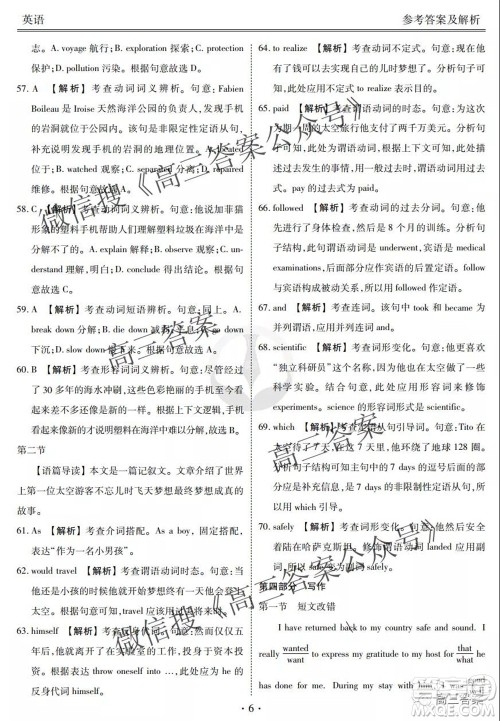 英语
参考答案及解析
志。A. voyage 航行;B. exploration 探索;C. protection
保护;D. pollution 污染。根据句意故选 D。
57. A 【解析】考查动词词义辨析。句意:Fabien
Boileau 是 Iroise 天然海洋公园的负责人,发现手机
的岩洞就位于公园内。该句是非限制性定语从句,
补充说明发现手机的岩洞的地理位置。A. located
位于;B. watched 观察;C. separated 分离;D. repaired
维修。根据句意故选 A。
58. C 【解析】考查动词词义辨析。句意:他说加菲猫
形象的塑料手机帮助人们理解塑料垃圾在海洋中是
如何分解的。A. explain 解释;B. observe 观察;C. under-
stand 理解;D. discover 发现。根据句意故选 C。
59. A 【解析】考查动词短语辨析。句意同上。A.
break down 分解;B. die down 减弱;C. calm down 平
静;D. slow down 慢下来。根据句意故选 A。
60. B 【解析】考查形容词词义辨析。句意:尽管经过
了 30 多年的海水冲刷,这些手机仍然看起来像新的
一样。根据上下文逻辑,B 项符合逻辑关系。手机
看起来像新的才能说明塑料在海洋中难以分解。
第二节
【语篇导读】本文是一篇记叙文。文章介绍了世
界上第一位太空游客不忘儿时飞天梦想最终实现梦想
的故事。
61. As 【解析】考查介词搭配。As a boy,根据句意
为“作为一个小男孩”。
62. would travel 【解析】考查动词时态。句意:
还小的孩子就梦想着有一天他将去太空旅行。根据
句意,表示过去将来。
63. himself 【解析】考查反身代词。句意:但是,几年
以后,他离开了实验室的工作,投身于投资事业。根
据表达 throw oneself into...,此处应为 he 的
反身代词 himself。
64. to realize 【解析】考查动词不定式。句意:在六十
岁的时候,他决定是时候实现他的儿时梦想了。分
析句子可知,此处应用 to realize 表示目的。
65. paid 【解析】考查谓语动词的时态。句意:他为
期一周的太空旅行他付了两千万美元。分析句子可
知,主句缺少谓语动词,根据时态为过去时可知,此
处应为 paid。
66. followed 【解析】考查过去分词。句意:他
经历了身体检查,然后是 8 个月的训练。分析句
子结构,句子的谓语动词是 underwent,宾语是 medical
examinations,此处与宾语构成被动关系,应为
followed。
67. and 【解析】考查并列连词。该句中 took 和 became
为并列谓语,故填 and。
68. scientific 【解析】考查词形变化。句意:他更喜欢
“独立科研员”这个称呼,因为他在太空做了一些
科学实验。此处应用形容词来修饰
experiments,science 的形容词形式是 scientific。
69. which 【解析】考查定语从句引导词。句意:Tito 在
太空待了 7 天零 22 小时,在此期间绕了地球 128 圈。
分析句子结构可知主句中的 7 days 作为先行词,后
面的定语从句应为 7 days 的非限制性定语从句,故
填 which。
70. safely 【解析】考查词形变化。句意:他最后安全
着陆在哈萨克斯坦。修饰谓语动词 landed 应用副
词,故应为 safely。
第四部分 写作
第一节 短文改错
I have returned back to my country safe and sound.
I really wanted to express my gratitude to my host for that
want them
he has done. During my stay with him, it was good
高三答案
· 6 ·
微信搜《高三答案公众号》
高三答案
高三答案公众号》
微信搜《高三答案公众号》